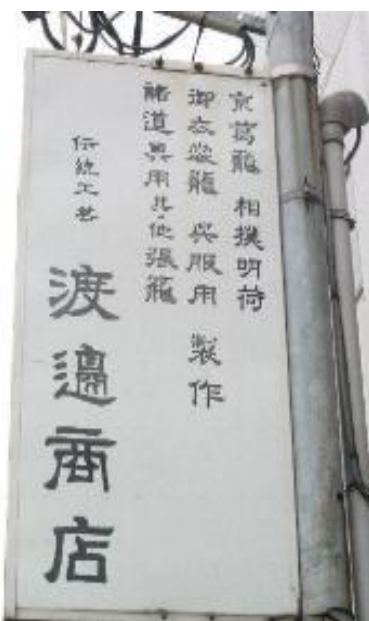 京葛籠 相撲明荷
御衣裳籠 呉服用 製作
諸道具用其ノ他張籠
伝統工芸 渡邊商店